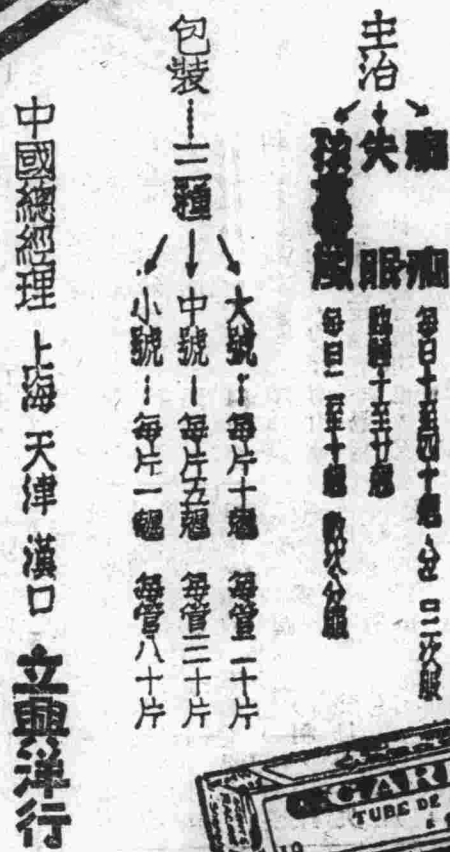 主治
癲癇 每日十至四十 分 二三次服
失眠 臨睡十至廿
孩 風 每日二至十 數次分服
包裝 三種
大號 每片十 每管二十片
中號 每片五 每管三十片
小號 每片一 每管八十片
中國總經理 上海 天津 漢口 立興洋行
GAR
TUBE DE